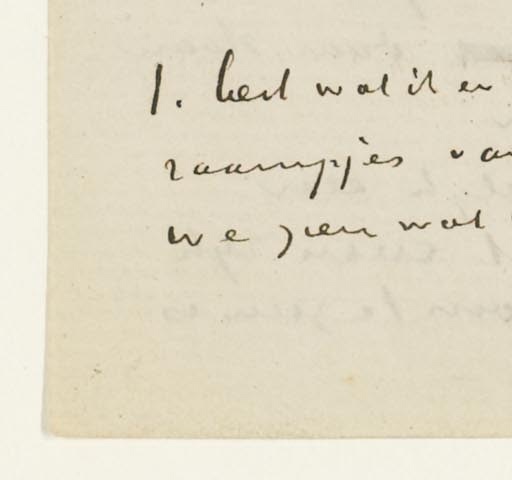 1. best wat it en
raampjes va
we zien wat